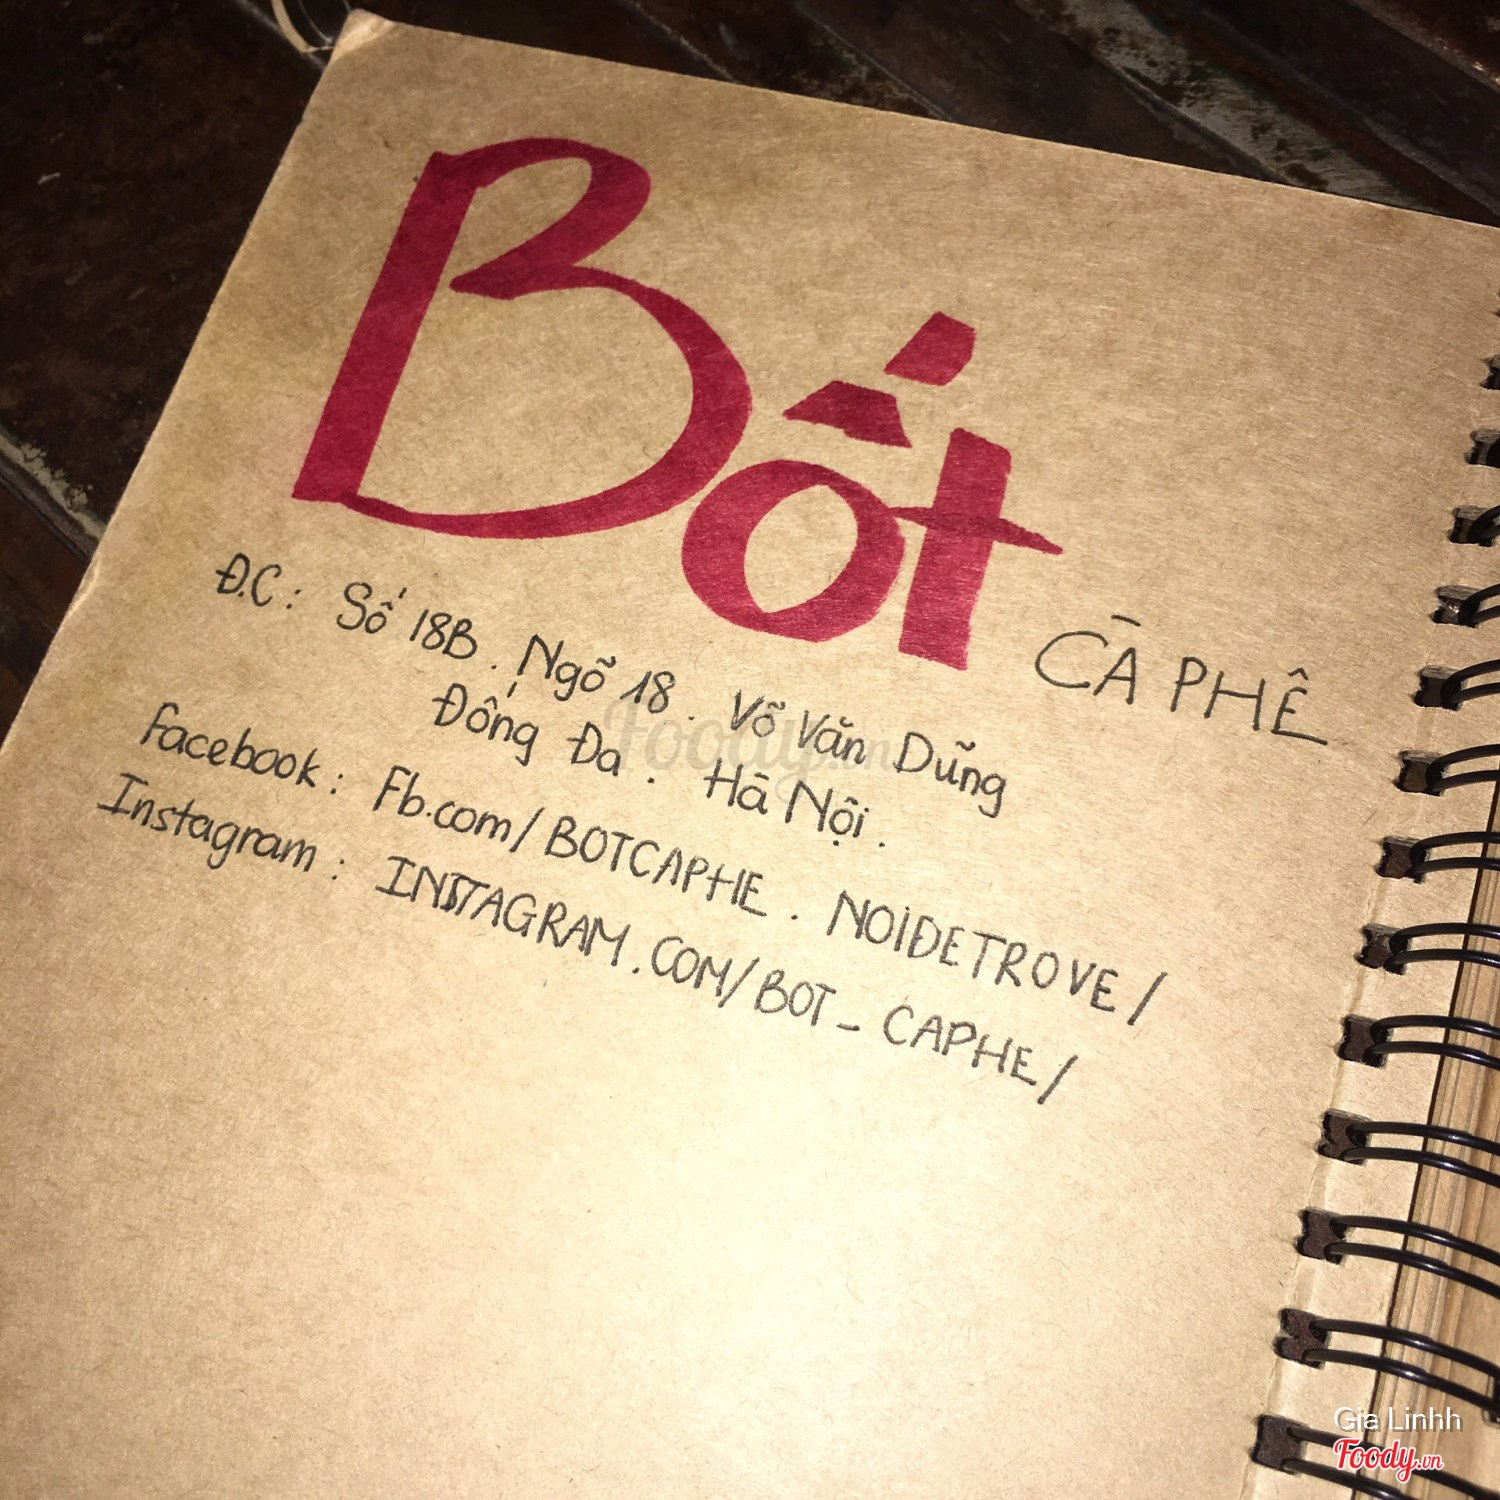 Bốt CÀ PHÊ
Đ.C : Số 18B . Ngõ 18 . Võ Văn Dũng
Đống Đa . Hà Nội .
Facebook : Fb.com/BOTCAPHE . NOIĐETROVE/
Instagram : INSTAGRAM.COM/BOT_CAPHE/
Foody.vn
Gia Linhh
Foody.vn